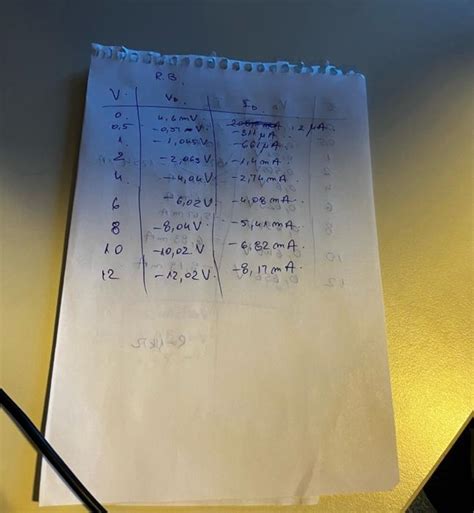 R.B.
V. V_D. I_D.
0. 4,6mV 2 µA.
0,5 -0,51 V. -311 µA
1. -1,045 V. -661 µA
2 -2,063 V. -1,4 mA.
4 -4,04 V. -2,74 mA.
6 -6,02 V. -4,08 mA.
8 -8,04 V. -5,41 mA.
10 -10,02 V. -6,82 mA.
12 -12,02 V. -8,17 mA.